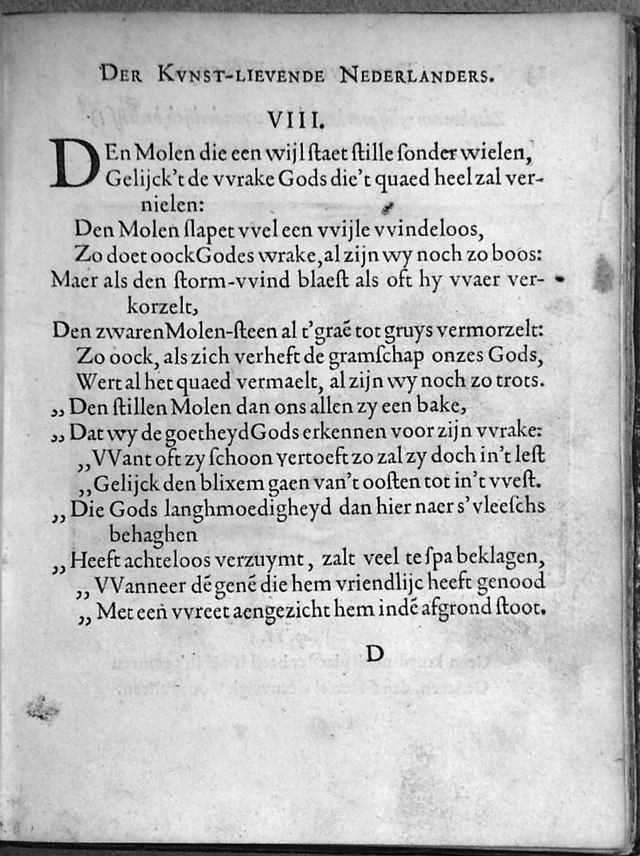 DER KVNST-LIEVENDE NEDERLANDERS.
VIII.
DEn Molen die een wijl ſtaet ſtille ſonder wielen,
Gelijck't de vvrake Gods die't quaed heel zal ver-
nielen:
Den Molen ſlapet vvel een vvijle vvindeloos,
Zo doet oock Godes wrake, al zijn wy noch zo boos:
Maer als den ſtorm-vvind blaeſt als oft hy vvaer ver-
korzelt,
Den zwaren Molen-ſteen al t'graē tot gruys vermorzelt:
Zo oock, als zich verheft de gramſchap onzes Gods,
Wert al het quaed vermaelt, al zijn wy noch zo trots.
,, Den ſtillen Molen dan ons allen zy een bake,
,, Dat wy de goetheyd Gods erkennen voor zijn vvrake:
,, VVant oft zy ſchoon vertoeft zo zal zy doch in't leſt
,, Gelijck den blixem gaen van't ooſten tot in't vveſt.
,, Die Gods langhmoedigheyd dan hier naer s'vleeſchs
behaghen
,, Heeft achteloos verzuymt, zalt veel te ſpa beklagen,
,, VVanneer dē genē die hem vriendlijc heeft genood
,, Met een vvreet aengezicht hem indē afgrond ſtoot.
D